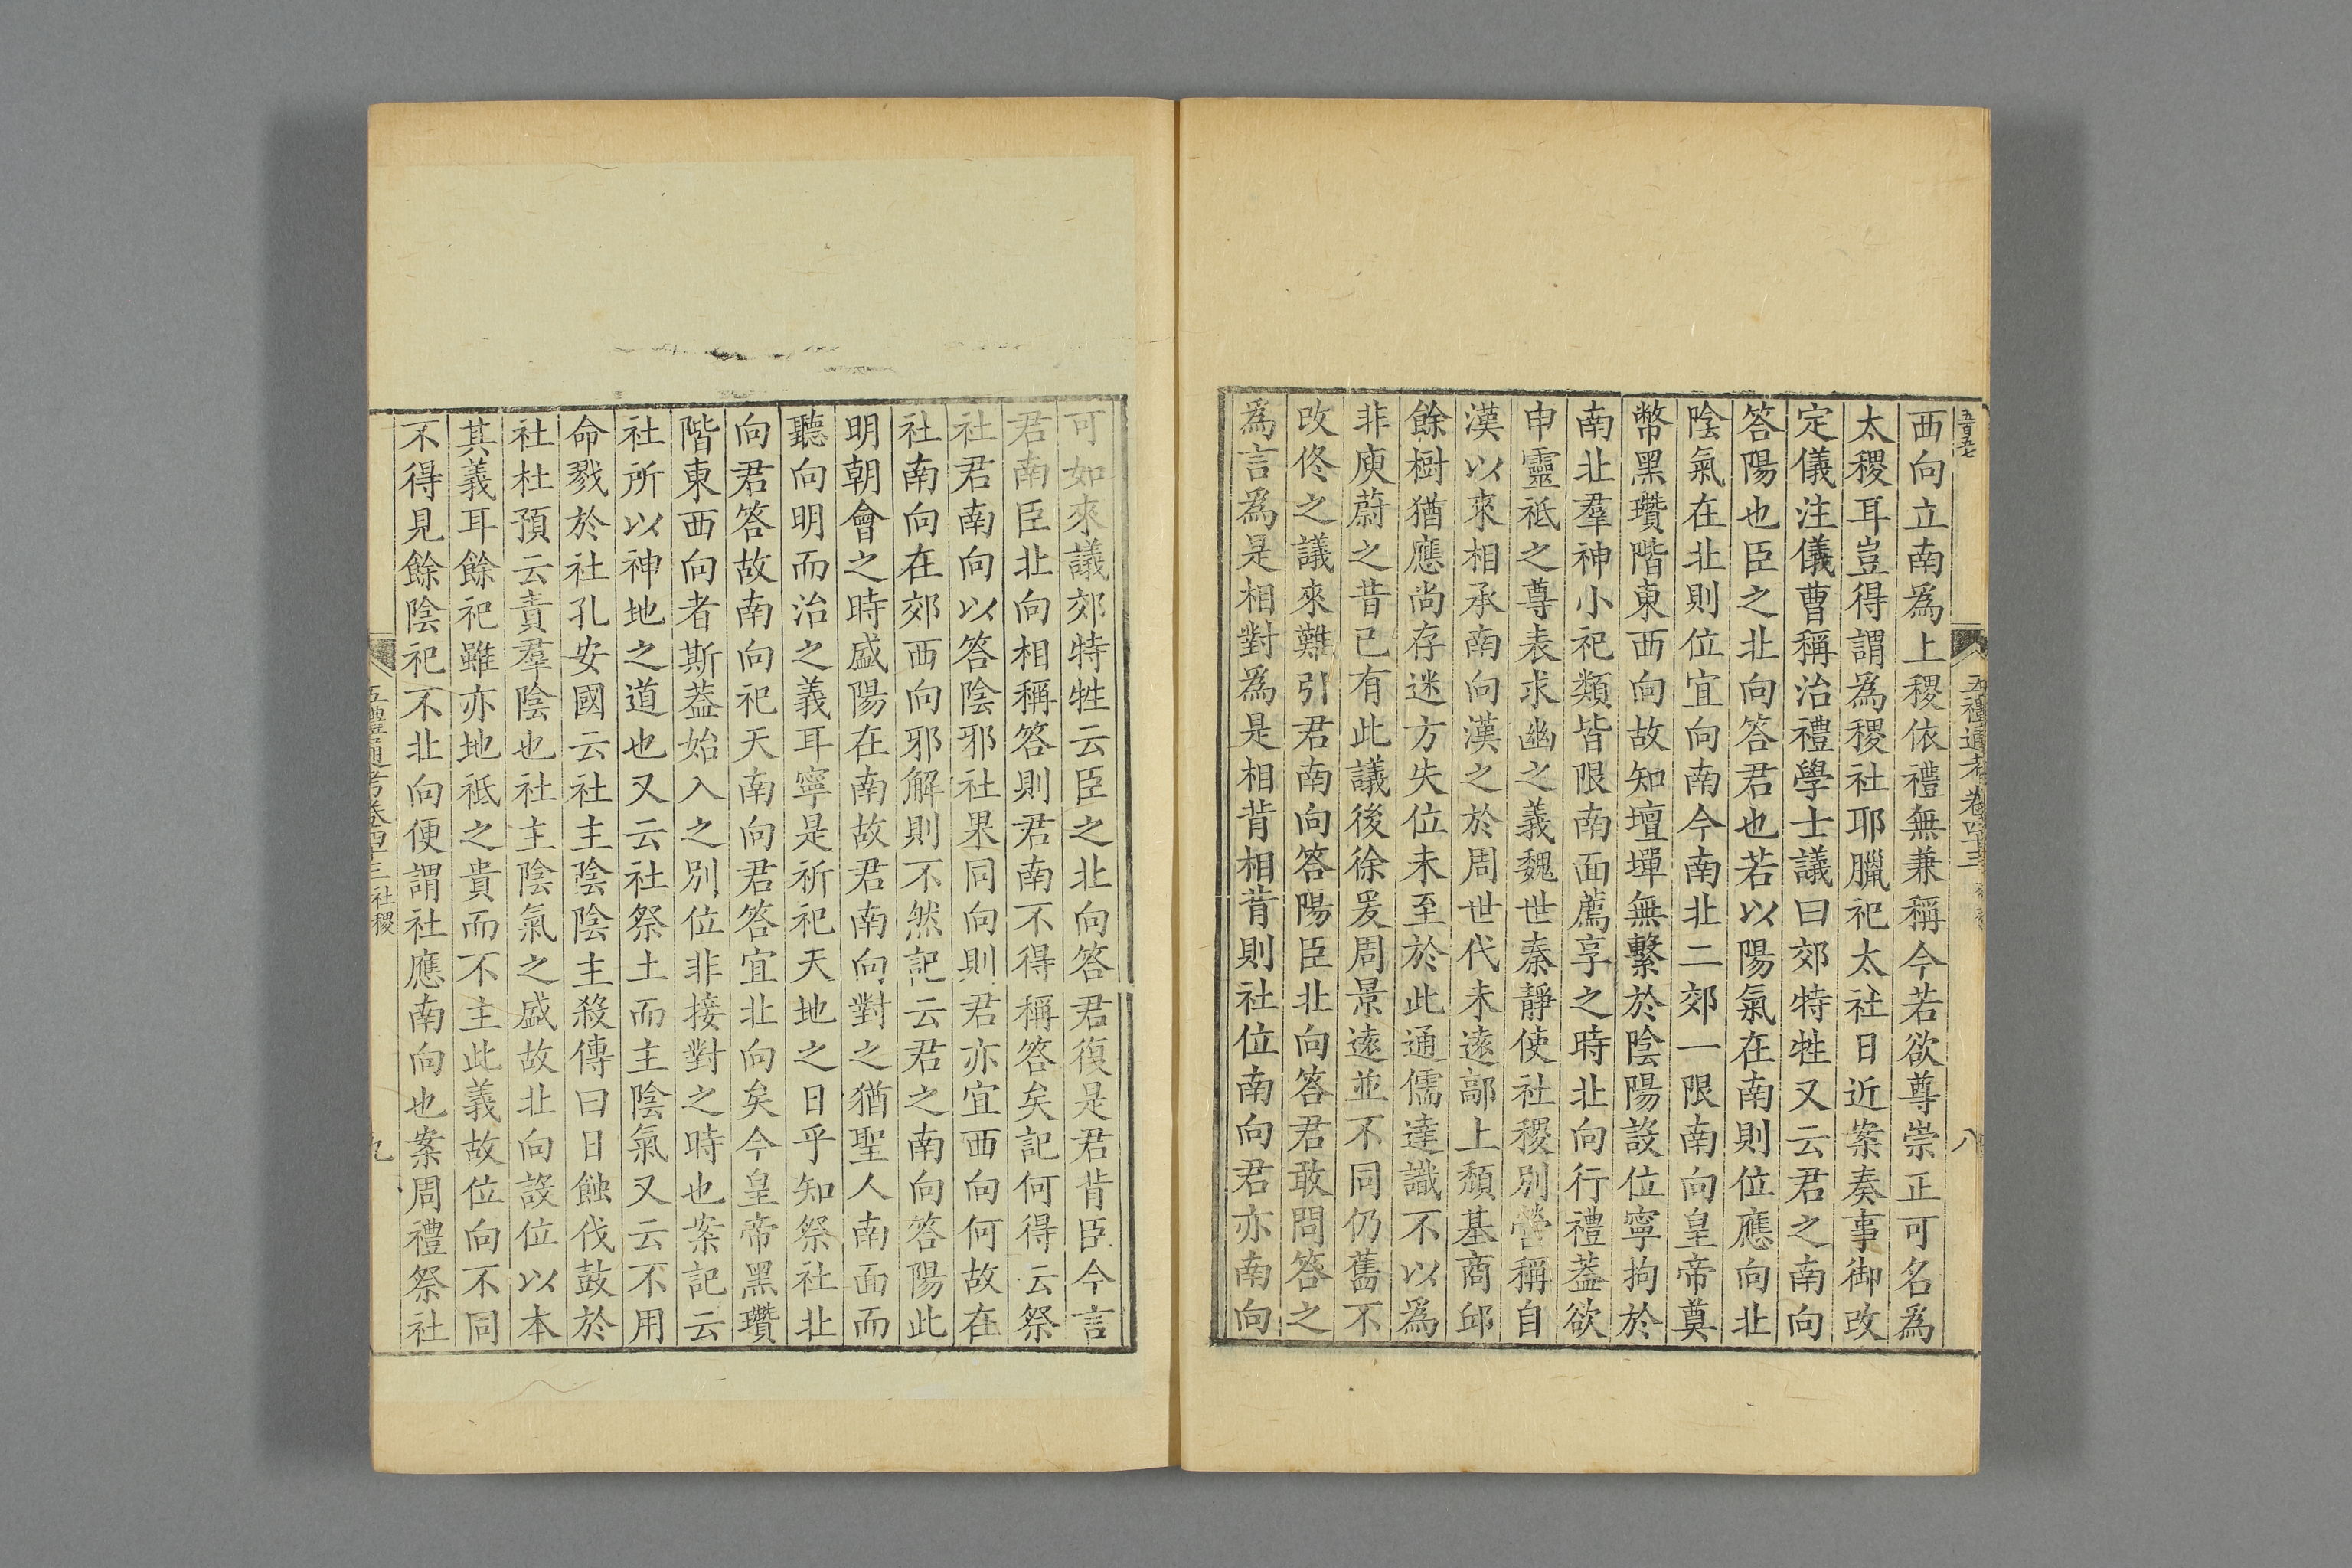 五百五七
五禮通考卷四十三
八
西向立南爲上稷依禮無兼稱今若欲尊崇正可名爲
太稷耳豈得謂爲稷社耶臘祀太社日近案奏事御改
定儀注儀曹稱治禮學士議曰郊特牲又云君之南向
答陽也臣之北向答君也若以陽氣在南則位應向北
陰氣在北則位宜向南今南北二郊一限南向皇帝奠
幣黑瓚階東西向故知壇墠無繫於陰陽設位寧拘於
南北羣神小祀類皆限南面薦享之時北向行禮蓋欲
申靈祗之尊表求幽之義魏世秦靜使社稷別營稱自
漢以來相承南向漢之於周世代未遠鄗上頹基商邱
餘樹猶應尚存迷方失位未至於此通儒達識不以爲
非庾蔚之昔已有此議後徐爰周景遠並不同仍舊不
改佟之議來難引君南向答陽臣北向答君敢問答之
爲言爲是相對爲是相背相背則社位南向君亦南向
可如來議郊特牲云臣之北向答君復是君背臣今言
君南臣北向相稱答則君南不得稱答矣記何得云祭
社君南向以答陰邪社果同向則君亦宜西向何故在
社南向在郊西向邪解則不然記云君之南向答陽此
明朝會之時盛陽在南故君南向對之猶聖人南面而
聽向明而治之義耳寧是祈祀天地之日乎知祭社北
向君答故南向祀天南向君答宜北向矣今皇帝黑瓚
階東西向者斯蓋始入之別位非接對之時也案記云
社所以神地之道也又云社祭土而主陰氣又云不用
命戮於社孔安國云社主陰陰主殺傳曰日蝕伐鼓於
社杜預云責羣陰也社主陰氣之盛故北向設位以本
其義耳餘祀雖亦地祗之貴而不主此義故位向不同
不得見餘陰祀不北向便謂社應南向也案周禮祭社
五禮通考卷四十三 社稷
九